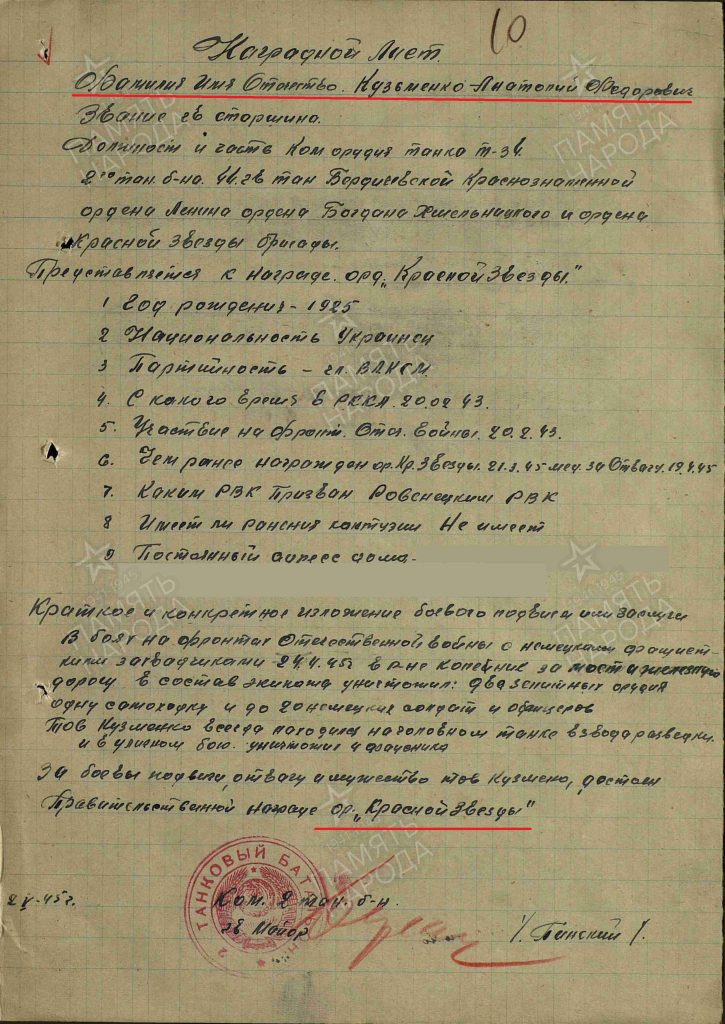 10
Наградной Лист.
Фамилия Имя Отчество. Кузьменко Анатолий Федорович
Звание гв старшина.
Должност и часть Ком орудия танка т-34.
2го тан. б-на. 44 гв тан Бердичевской Краснознаменной
ордена Ленина ордена Богдана Хмельницкого и ордена
Красной Звезды бригады.
Представляется к награде. орд. „Красной Звезды."
1 Год рождения - 1925
2 Национальность Украинец
3 Партийность - чл. ВЛКСМ.
4. С какого время в РККА. 20.02 43.
5. Участвие на фронт. Отеч. Войны. 20.2.43.
6. Чем ранее награжден ор. Кр. Звезды. 21.3.45 мед. за Отвагу. 19.4.45
7. Каким РВК Призван Ровенецким РВК
8 Имеет ли ранения контузии Не имеет
9 Постоянный адрес дома-
Краткое и конкретное изложение боевого подвига или заслуги
В боях на фронтах Отечественной войны с немецкими фашист-
кими захватчиками 24.4.45г в за мост и железную
дорогу в состав экипажа уничтожил: два зенитных орудия
одну самоходку и до 20 немецких солдат и офицеров
Тов Кузменко всегда находился на головном танке взвода разведки.
и в уличном бою. уничтожил 4 фаусника
За боевы подвиги, отвагу и мужество тов Кузмено, достоен
Правительственной награде ор. „Красной Звезды"
2 ТАНКОВЫЙ БАТ
2 V-45г.
Ком. 2 тан. б-н.
гв Майор
/. Пинский /.
ПАМЯТЬ
НАРОДА
1945